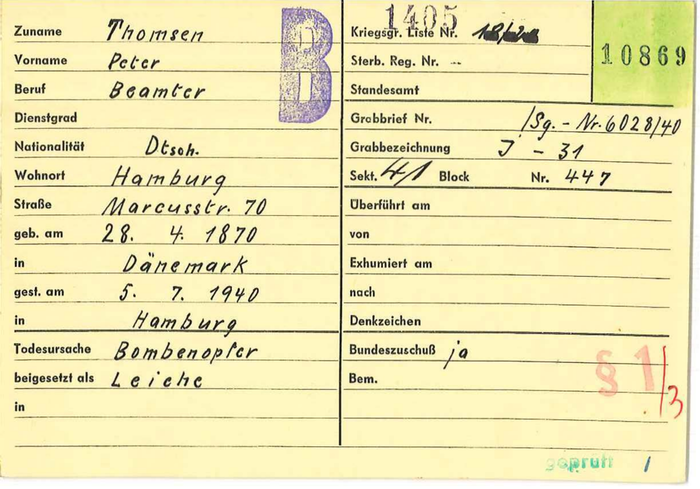 Zuname Thomsen
Vorname Peter
Beruf Beamter
Dienstgrad
Nationalität Dtsch.
Wohnort Hamburg
Straße Marcusstr. 70
geb. am 28. 4. 1870
in Dänemark
gest. am 5. 7. 1940
in Hamburg
Todesursache Bombenopfer
beigesetzt als Leiche
in
B
1405
Kriegsgr. Liste Nr.
10869
Sterb. Reg. Nr. --
Standesamt
Grabbrief Nr. /Sg. - Nr. 6028/40
Grabbezeichnung J - 31
Sekt. 4/1 Block Nr. 447
Überführt am
von
Exhumiert am
nach
Denkzeichen
Bundeszuschuß ja
Bem.
§ 1/3
geprüft